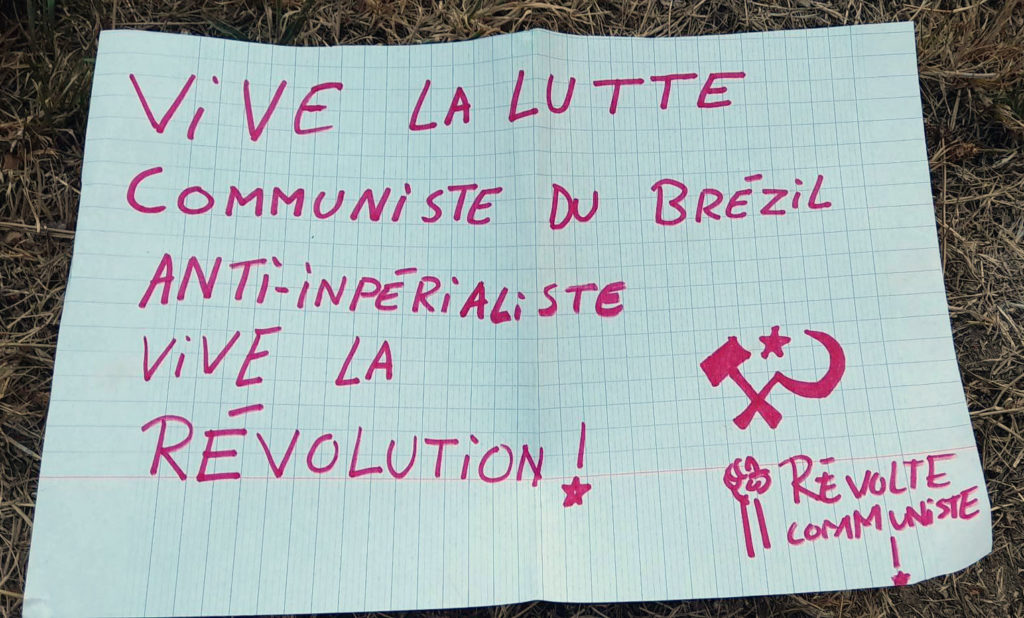 ViVE LA LUTTE
COMMUNiSTE DU BRÉZiL
ANTi-iNPÉRiALiSTE
ViVE LA
RÉVOLUTiON !
RÉVOLTE
COMMUNiSTE
!